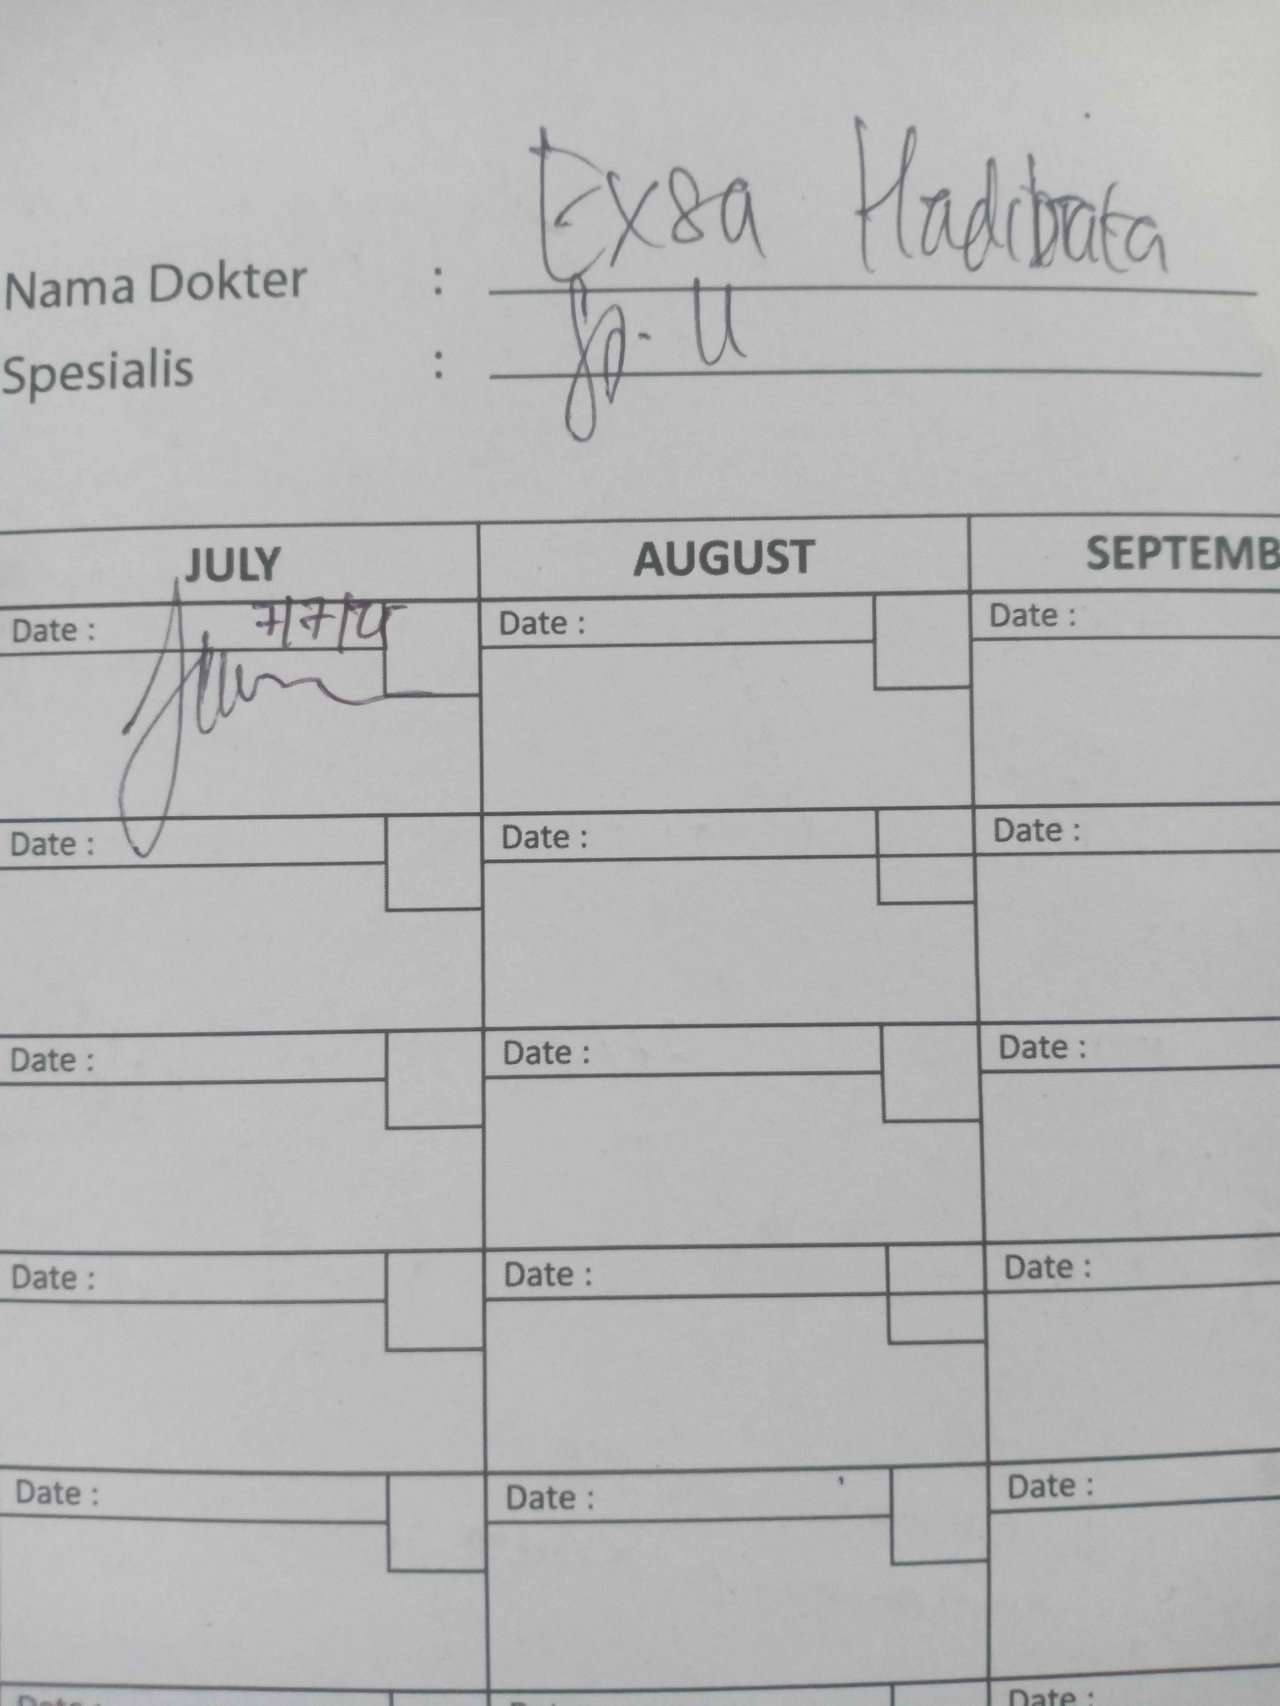 Nama Dokter : Exsa Hadibrata
Spesialis : Sp. U
JULY AUGUST SEPTEMB
Date : 7/7/25 Date : Date :
Date : Date : Date :
Date : Date : Date :
Date : Date : Date :
Date : Date : Date :
Date : Date : Date :